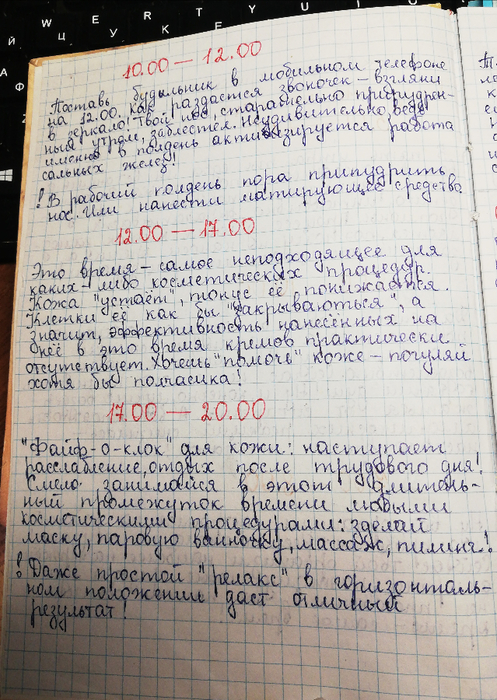 W E R T Y U I
Й Ц У К Е Н Г
Ф
10.00 — 12.00
Поставь будильник в мобильном телефоне
на 12.00. Как раздастся звоночек – взгляни
в зеркало! Твой нос, старательно припудрен-
ный утром, заблестел. Неудивительно, ведь
именно в полдень активизируется работа
сальных желез!
! В рабочий полдень пора припудрить
нос. Или нанести матирующее средство
12.00 — 17.00
Это время – самое неподходящее для
каких-либо косметических процедур.
Кожа "устаёт", тонус её понижается.
Клетки её как бы "закрываются", а
значит, эффективность нанесённых на
неё в это время кремов практически
отсутствует. Хочешь "помочь" коже – погуляй
хотя бы полчасика!
17.00 — 20.00
"Файф-о-клок" для кожи: наступает
расслабление, отдых после трудового дня!
Смело занимайся в этот длитель-
ный промежуток времени любыми
косметическими процедурами: сделай
маску, паровую ванночку, массаж, пилинг!
! Даже простой "релакс" в горизонталь-
ном положении даст отличный
результат!